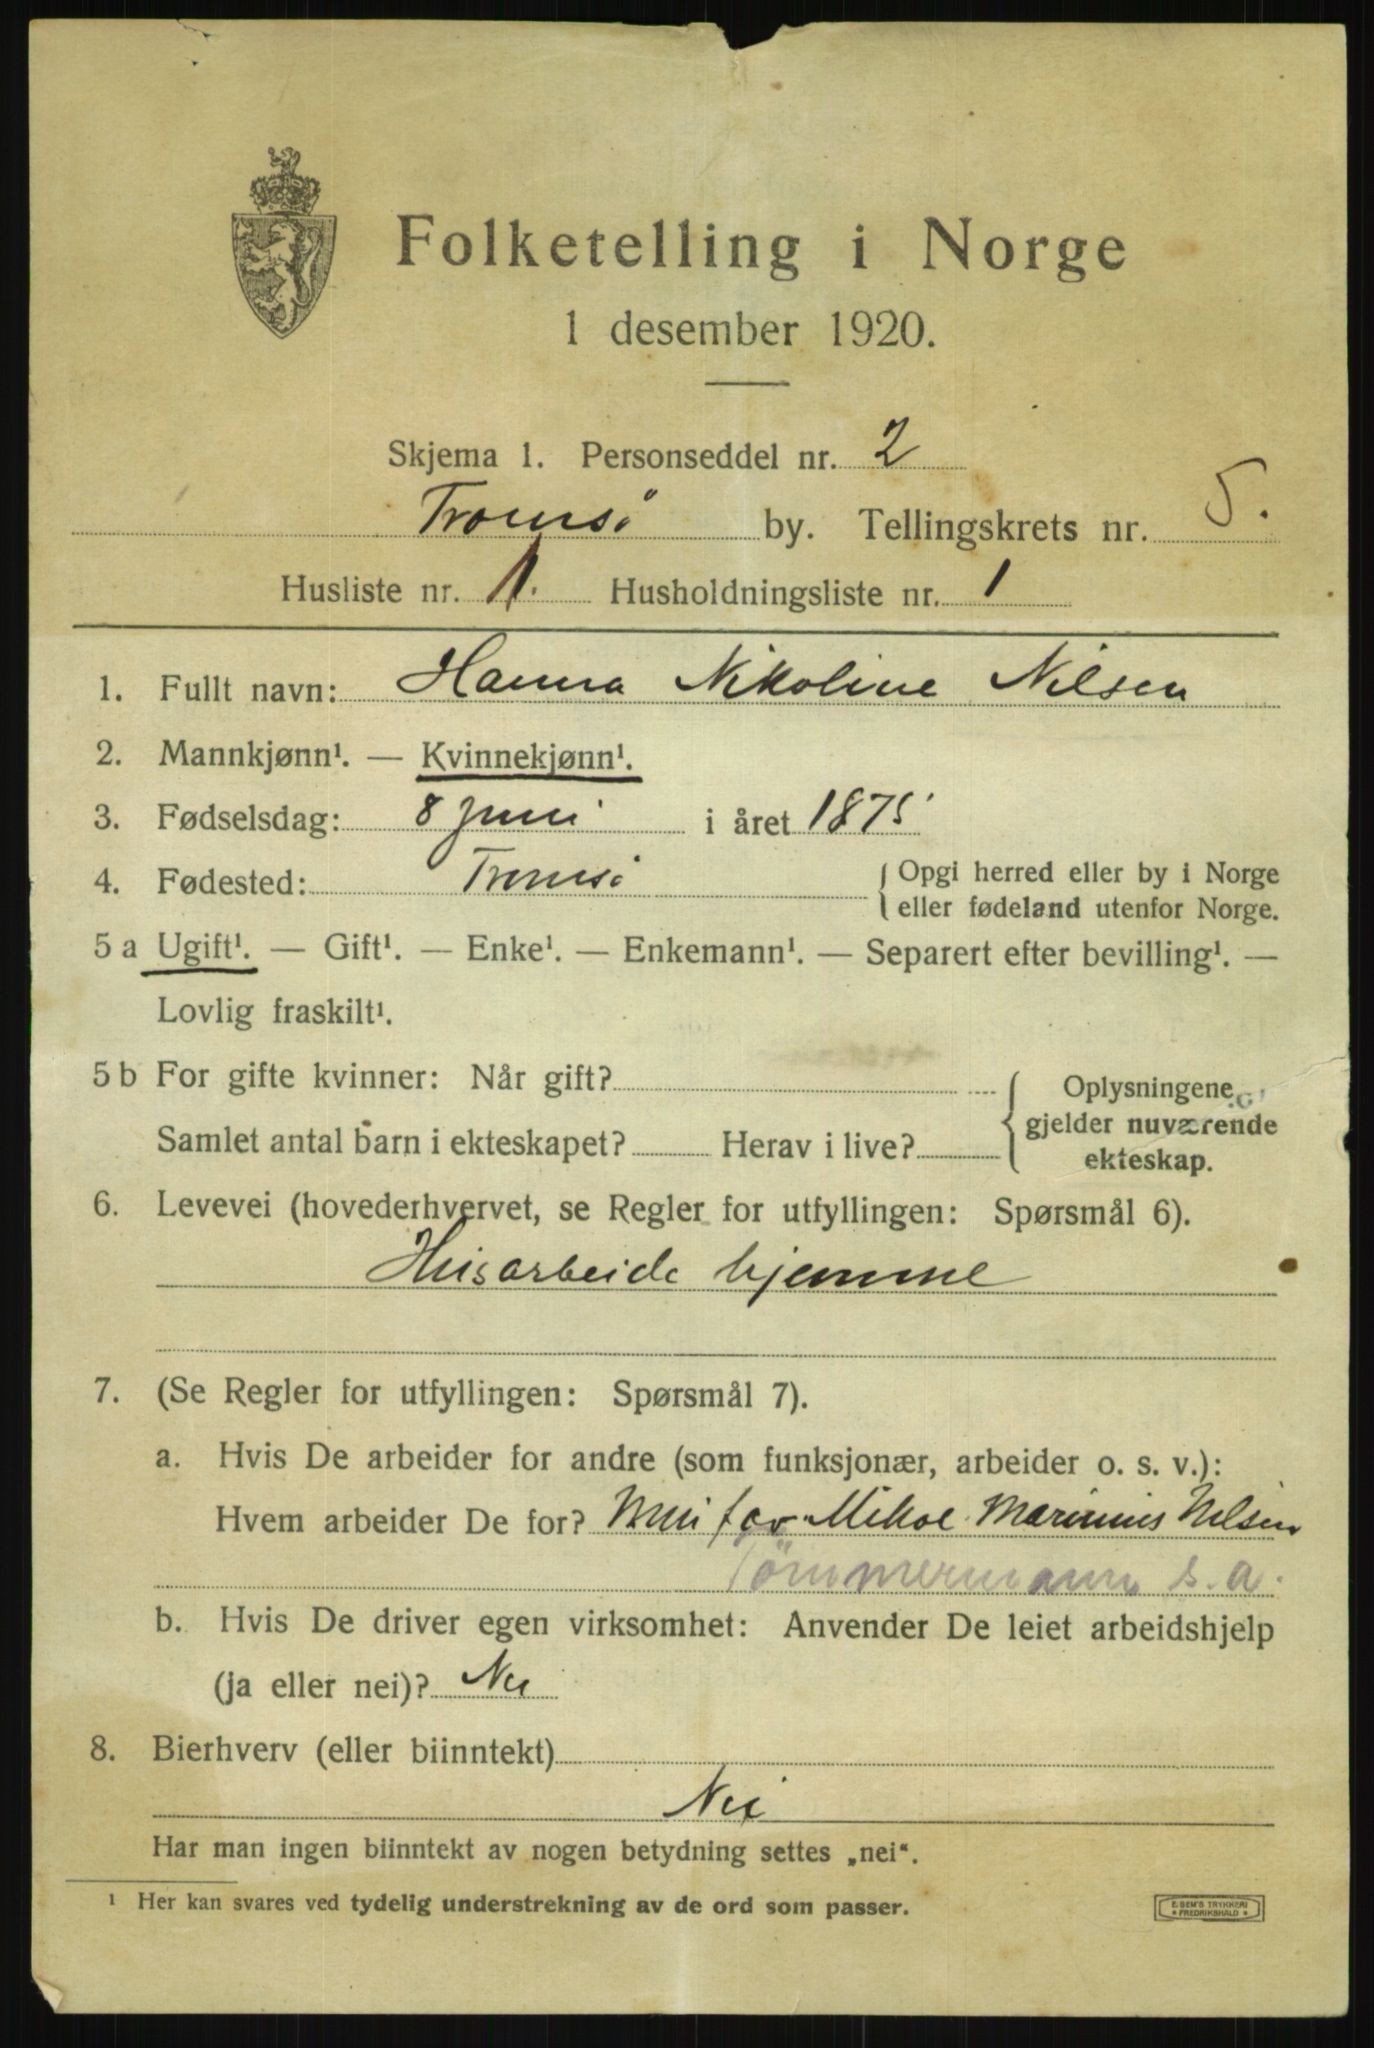 Folketelling i Norge
1 desember 1920.
Skjema 1. Personseddel nr. 2
Tromsö by. Tellingskrets nr. 5.
Husliste nr. 1. Husholdningsliste nr. 1
1. Fullt navn: Hanna Nikoline Nilsen
2. Mannkjønn¹. — Kvinnekjønn¹.
3. Fødselsdag: 8 juni i året 1875
4. Fødested: Tromsö { Opgi herred eller by i Norge
eller fødeland utenfor Norge.
5 a Ugift¹. — Gift¹. — Enke¹. — Enkemann¹. — Separert efter bevilling¹. —
Lovlig fraskilt¹.
5 b For gifte kvinner: Når gift? { Oplysningene
gjelder nuværende
Samlet antal barn i ekteskapet? Herav i live?
ekteskap.
6. Levevei (hovederhvervet, se Regler for utfyllingen: Spørsmål 6).
Husarbeide hjemme
7. (Se Regler for utfyllingen: Spørsmål 7).
a. Hvis De arbeider for andre (som funksjonær, arbeider o. s. v.):
Hvem arbeider De for? Min far Mikal Marinius Nilsen
Tömmermann s. a.
b. Hvis De driver egen virksomhet: Anvender De leiet arbeidshjelp
(ja eller nei)? Nei
8. Bierhverv (eller biinntekt)
Nei
Har man ingen biinntekt av nogen betydning settes „nei“.
¹ Her kan svares ved tydelig understrekning av de ord som passer.
E. SEM'S TRYKKERI
* FREDRIKSHALD *